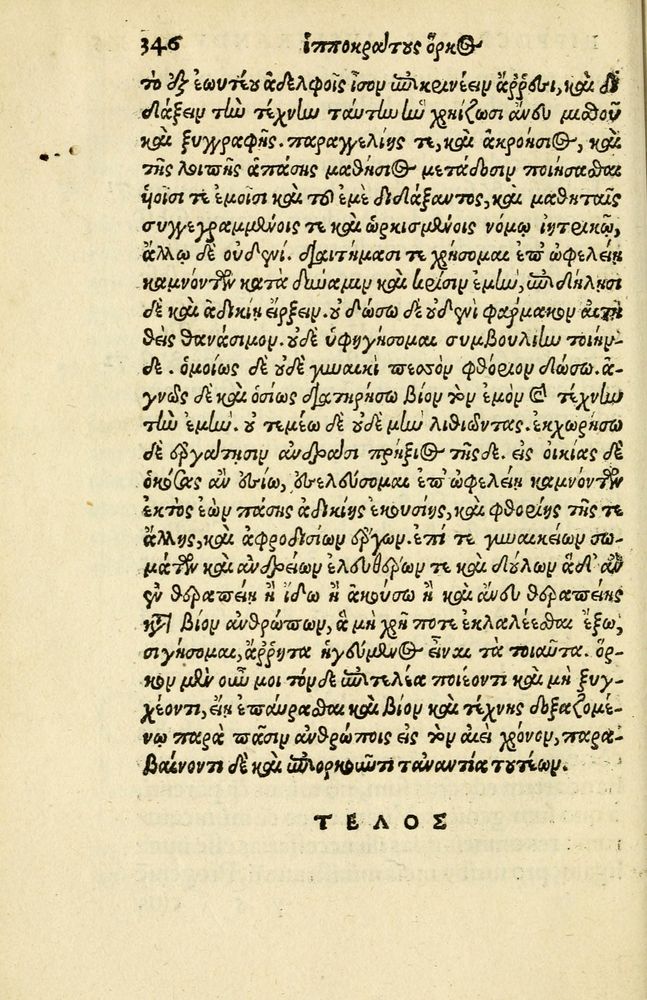 346 ἱπποκράτους ὅρκος
το ἐξ ἑωυτέου ἀδελφοῖς ἴσον ἐπικρινέειν ἄῤῥεσι, καὶ δι
δάξειν τὴν τέχνην ταύτην ἢν χρηίζωσι ἄνευ μισθοῦ
καὶ ξυγγραφῆς. παραγγελίης τε, καὶ ἀκροήσιος, καὶ
τῆς λοιπῆς ἁπάσης μαθήσιος μετάδοσιν ποιήσασθαι
υἱοῖσί τε ἐμοῖσι καὶ τοῦ ἐμὲ διδάξαντος, καὶ μαθηταῖς
συγγεγραμμένοις τε καὶ ὡρκισμένοις νόμῳ ἰητρικῷ,
ἄλλῳ δὲ οὐδενί. διαιτήμασί τε χρήσομαι ἐπ᾽ ὠφελείῃ
καμνόντων κατὰ δύναμιν καὶ κρίσιν ἐμὴν, ἐπὶ δηλήσι
δὲ καὶ ἀδικίῃ εἴρξειν. οὐ δώσω δὲ οὐδενὶ φάρμακον αἰτη
θεὶς θανάσιμον. οὐδὲ ὑφηγήσομαι συμβουλίην τοιήν-
δε. ὁμοίως δὲ οὐδὲ γυναικὶ πεσσὸν φθόριον δώσω. ἁ-
γνῶς δὲ καὶ ὁσίως διατηρήσω βίον τὸν ἐμὸν καὶ τέχνην
τὴν ἐμήν. οὐ τεμέω δὲ οὐδὲ μὴν λιθιῶντας. ἐκχωρήσω
δὲ ἐργάτῃσιν ἀνδράσι πρήξιος τῆς δε. εἰς οἰκίας δὲ
ὁκόσας ἂν ἐσίω, ἐσελεύσομαι ἐπ᾽ ὠφελείῃ καμνόντων
ἐκτὸς ἐὼν πάσης ἀδικίης ἑκουσίης, καὶ φθορίης τῆς τε
ἄλλης, καὶ ἀφροδισίων ἔργων. ἐπί τε γυναικείων σω-
μάτων καὶ ἀνδρείων ἐλευθέρων τε καὶ δούλων ἃ δ᾽ ἂν
ἐν θεραπείῃ ἢ ἴδω ἢ ἀκούσω ἢ καὶ ἄνευ θεραπείης
κατὰ βίον ἀνθρώπων, ἃ μὴ χρή ποτε ἐκλαλέεσθαι ἔξω,
σιγήσομαι, ἄῤῥητα ἡγούμενος εἶναι τὰ τοιαῦτα. ὅρ-
κον μὲν οὖν μοι τόνδε ἐπιτελέα ποιέοντι καὶ μὴ ξυγ-
χέοντι, εἴη ἐπαύρασθαι καὶ βίου καὶ τέχνης δοξαζομέ-
νῳ παρὰ πᾶσιν ἀνθρώποις εἰς τὸν ἀεὶ χρόνον, παρα-
βαίνοντι δὲ καὶ ἐπιορκοῦντι τἀναντία τουτέων.
ΤΕΛΟΣ